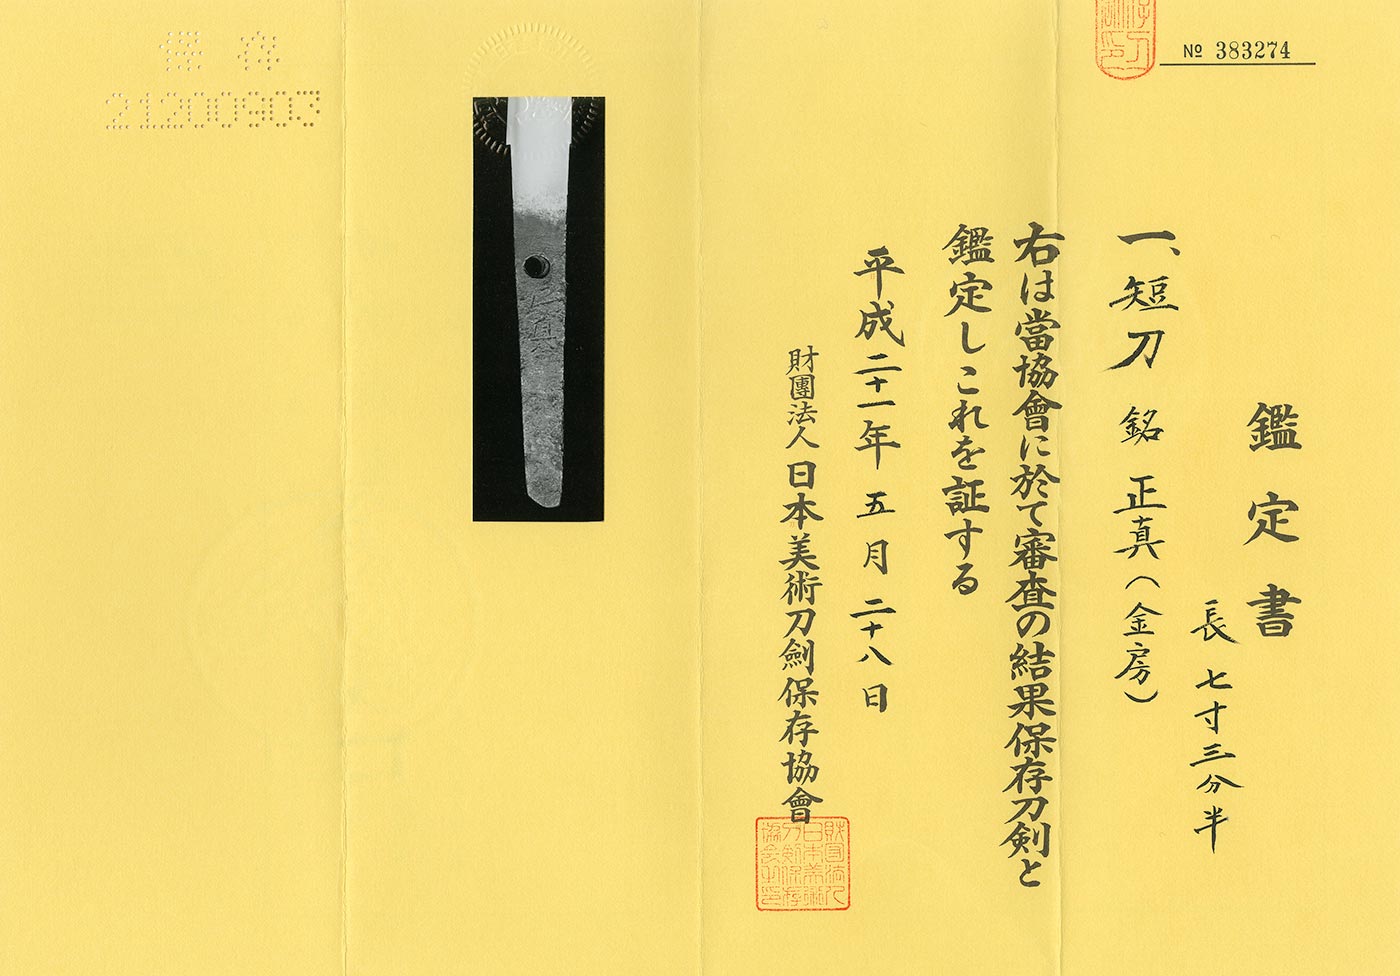 № 383274
鑑定書
長 七寸三分半
一、短刀 銘 正真(金房)
右は當協會に於て審査の結果保存刀剣と
鑑定しこれを証する
平成二十一年 五月 二十八日
財團法人 日本美術刀劍保存協會
正真
保存
21200903